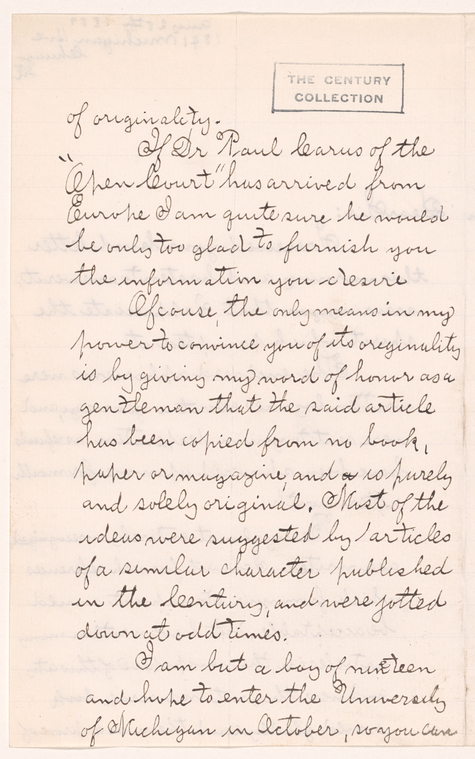 THE CENTURY
COLLECTION
of originality.
If Dr Paul Carus of the
"Open Court" has arrived from
Europe I am quite sure he would
be only too glad to furnish you
the information you desire
Of couse, the only means in my
power to convince you of its originality
is by giving my word of honor as a
gentleman that the said article
has been copied from no book,
paper or magazine, and is purely
and solely original. Most of the
ideas were suggested by articles
of a similar character published
in the Century, and were jotted
down at odd times.
I am but a boy of nineteen
and hope to enter the University
of Michigan in October, so you can